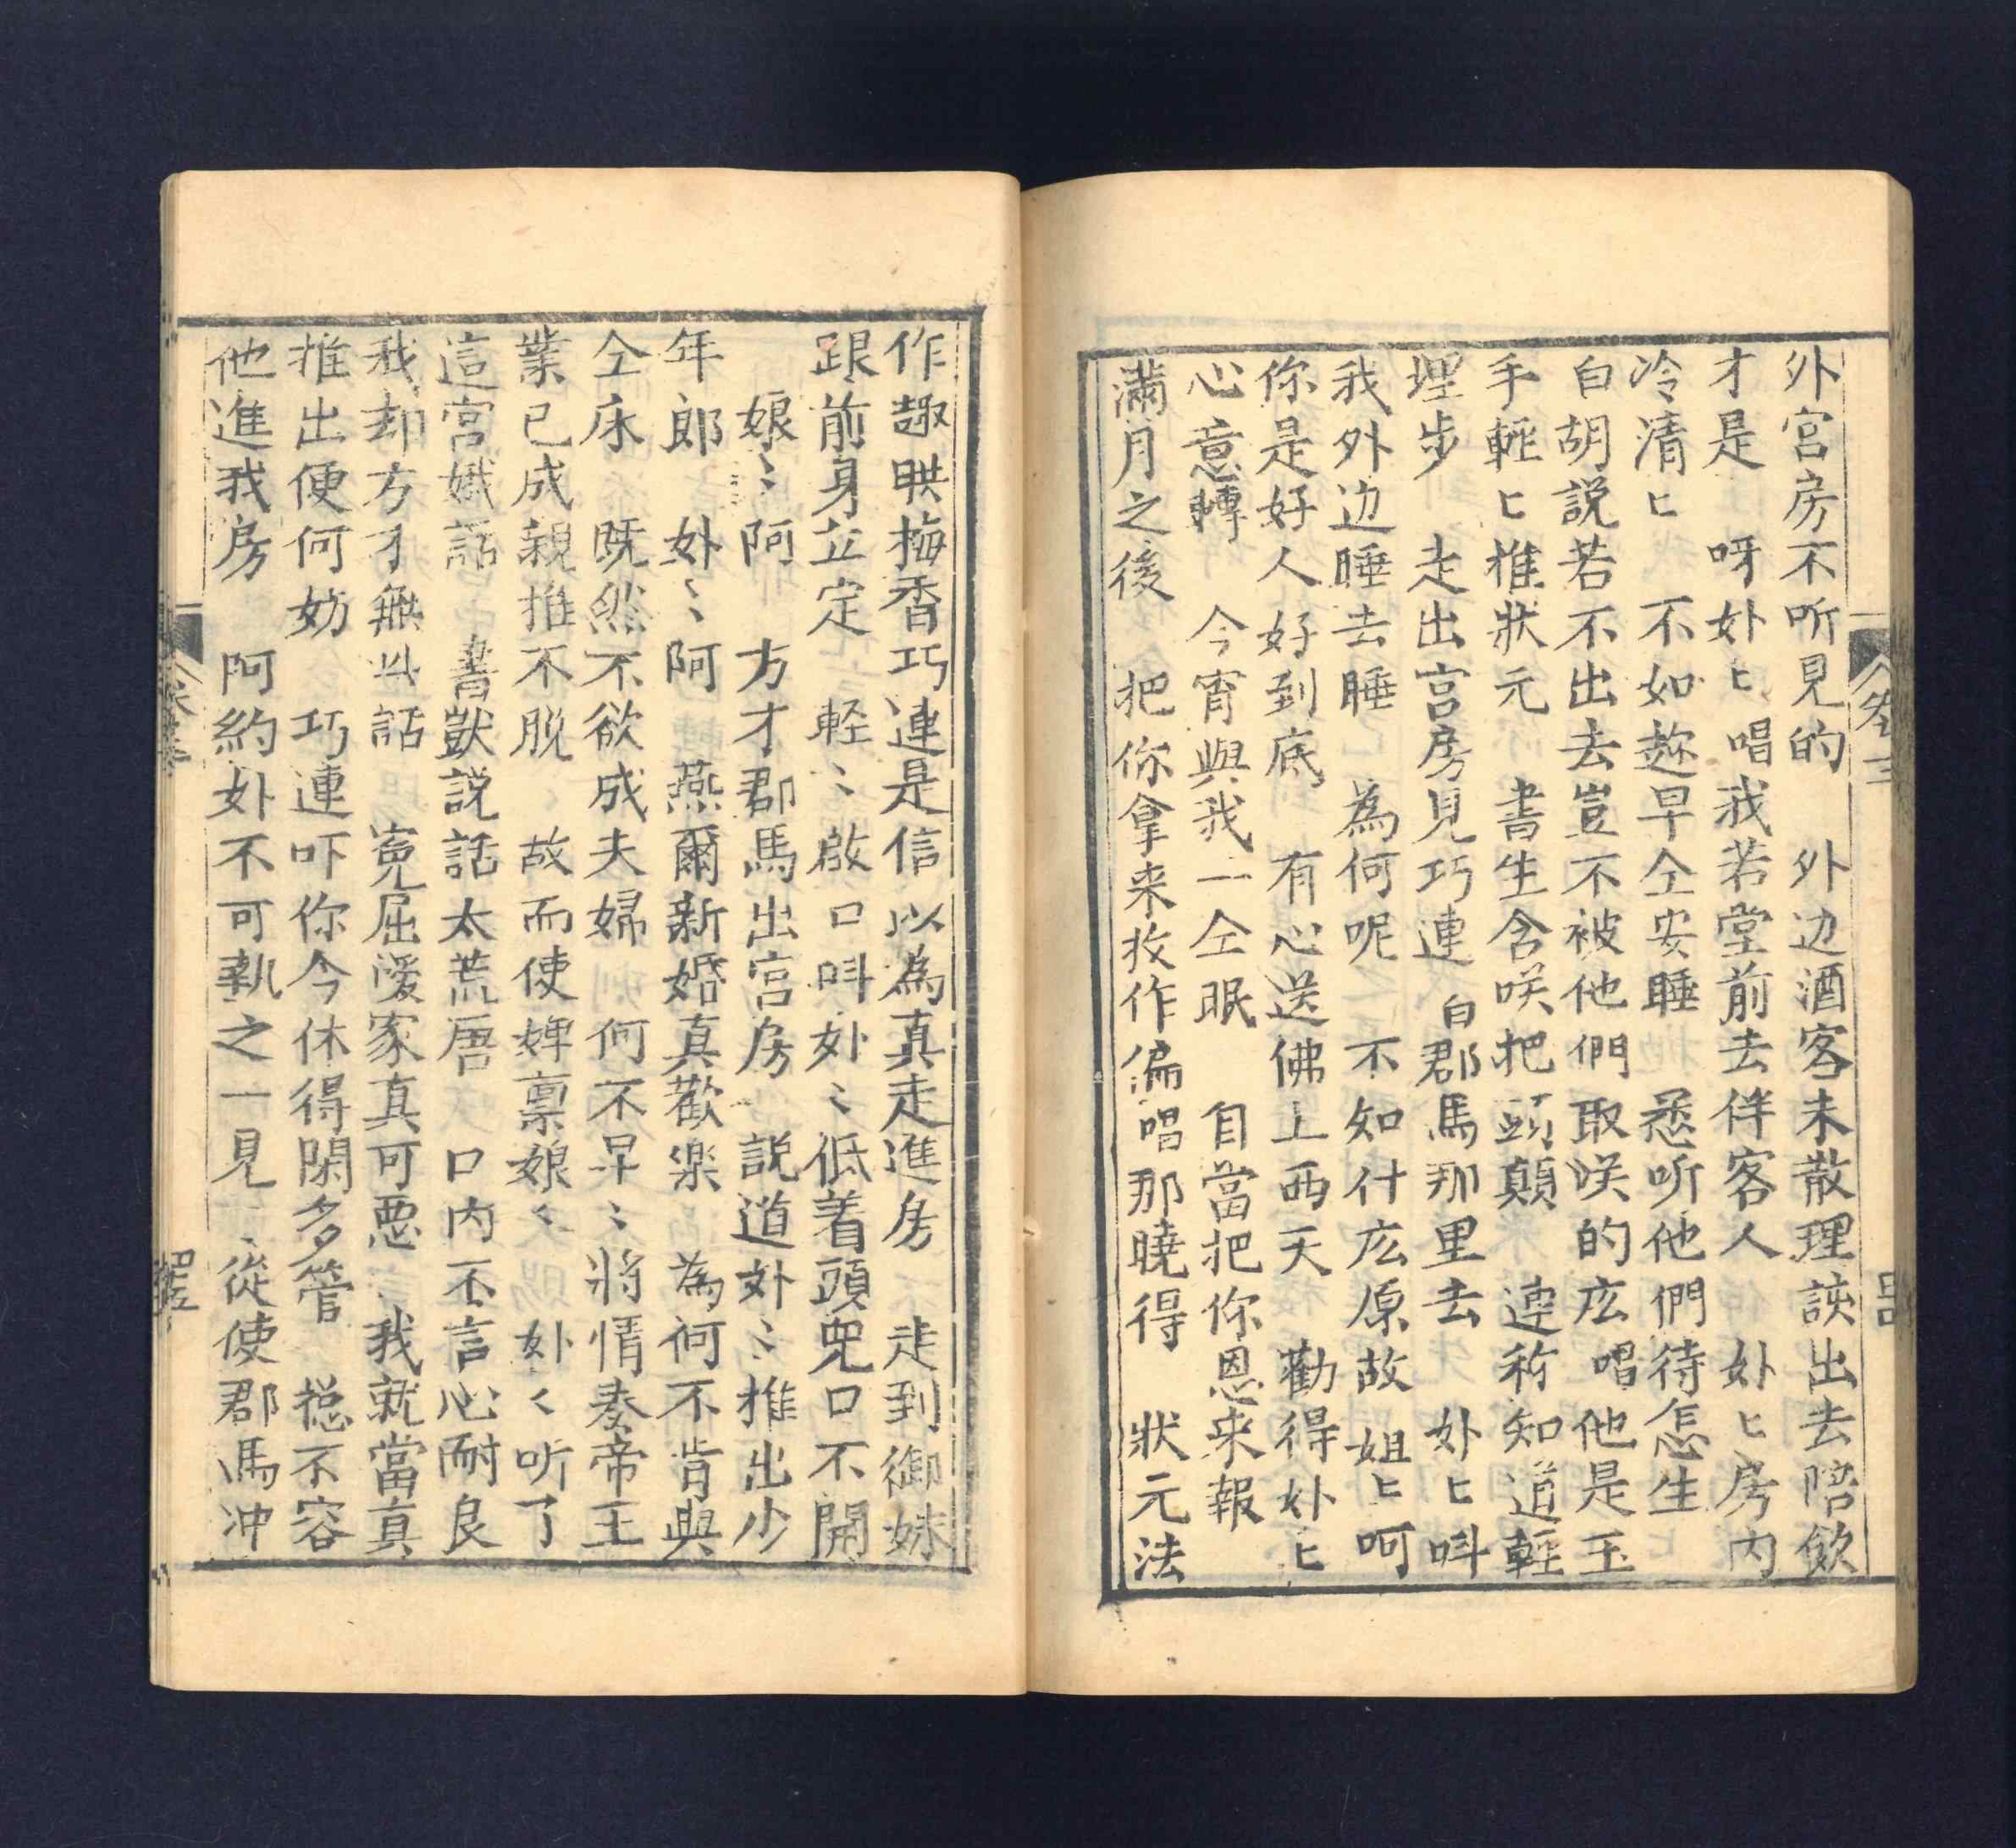 外宮房不听見的　外边酒客未散理該出去陪飲
才是　呀外匕唱我若堂前去伴客人　外匕房內
冷清匕　不如趂早仝安睡　悉听他們待怎生
白胡説若不出去豈不被他們取咲的庅唱他是玉
手輕匕推狀元　書生含咲把頭顛　連称知道輕
埋步　走出宮房見巧連　白郡馬那里去　外匕呌
我外边睡去睡　為何呢　不知什庅原故　姐匕呵
你是好人好到底　有心送佛上西天　勸得外匕
心意轉　今宵與我一仝眠　自當把你恩来報
滿月之後　把你拿来扙作偏唱那曉得　狀元法
作趣哄梅香巧連是信以為真走進房　走到御妹
跟前身立定　軽〻啟口呌外〻低着頭兜口不開
娘〻阿　方才郡馬出宮房　説道外〻推出少
年郎　外〻阿　燕爾新婚真歡楽　為何不肯與
仝床　既然不欲成夫婦　何不早〻將情奏帝王
業已成親推不脱　故而使婢禀娘〻　外〻听了
這宮娥話　書獃説話太荒唐　口內不言心耐良
我却方才無此話　寃屈僾家真可惡　我就當真
推出便何妨　巧連吓你今休得閑多管　揔不容
他進我房　阿約外不可執之一見　從使郡馬冲
卷三